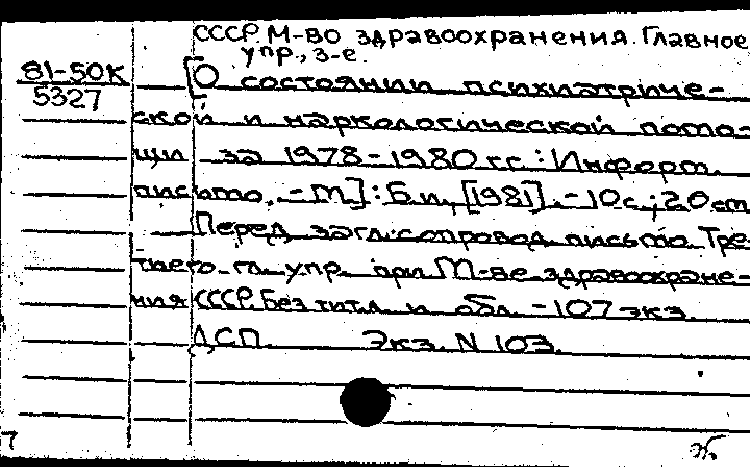 СССР. М-ВО здравоохранения. Главное
упр., 3-е.
81-50К
5327
[О состоянии психиатриче-
ской и наркологической помо-
щи за 1978-1980 гг.: Информ.
письмо. - М.]: Б.и., [1981]. - 10с.; 20 см
Перед загл.: сопровод. письмо Тре-
тьего гл. упр. при М-ве здравоохране-
ния СССР. Без тит. л. и обл. - 107 экз.
ДСП. Экз. N 103.
7